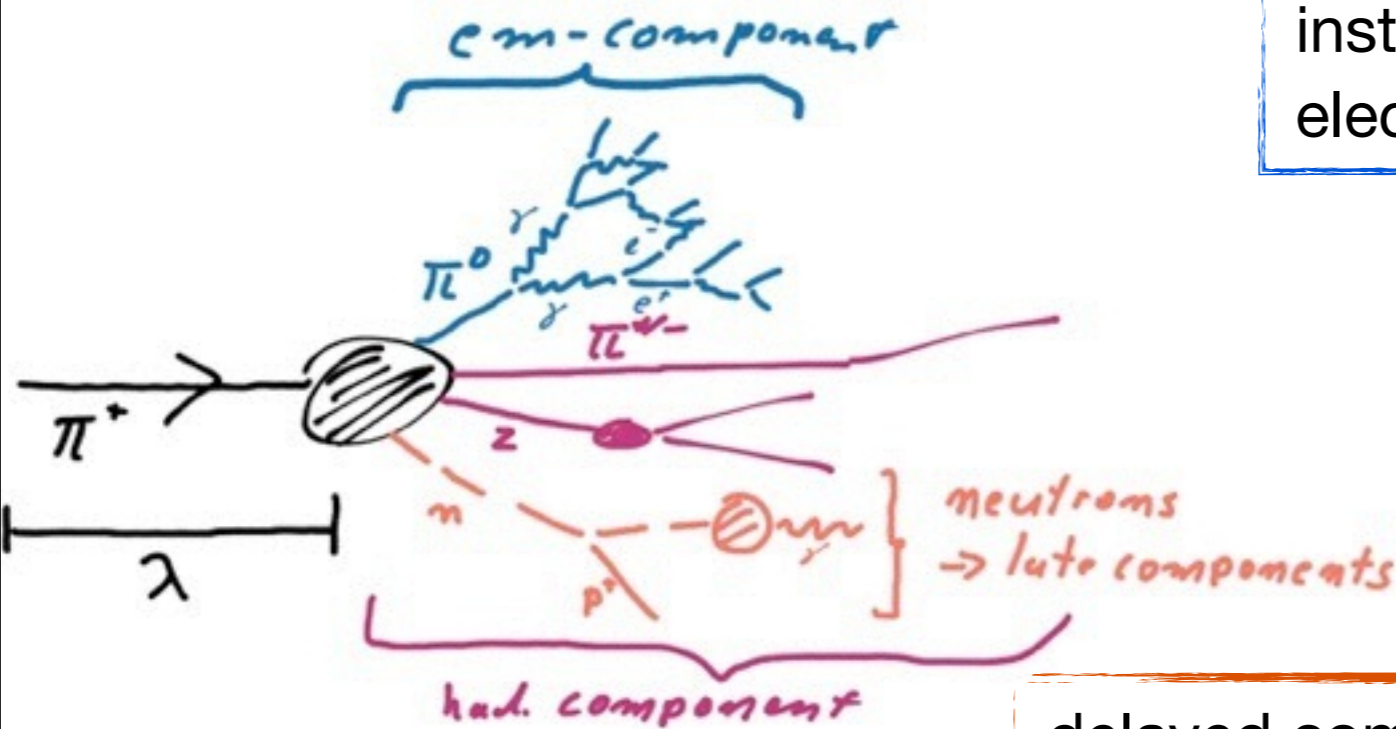 em-component
inst
elec
γ
π⁰
e⁻
γ
e⁺
π⁺/⁻
π⁺
z
n
neutrons
→ late components
γ
λ
p⁺
had. component
delayed com